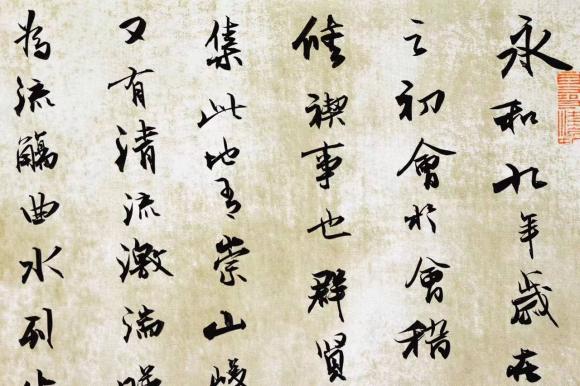 永和九年歲在
之初會於會稽
脩禊事也群賢
集此地有崇山峻
又有清流激湍暎
為流觴曲水列坐